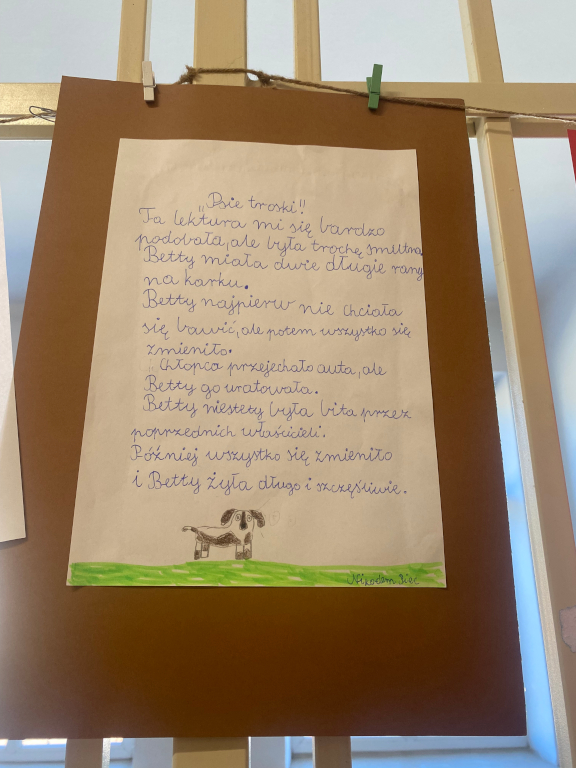 Psie troski!!
Ta lektura mi się bardzo
podobała, ale była trochę smutna.
Betty miała dwie długie rany
na karku.
Betty najpierw nie chciała
się bawić, ale potem wszystko się
zmieniło.
Chłopca przejechało auta, ale
Betty go uratowała.
Betty niestety była bita przez
poprzednich właścicieli.
Później wszystko się zmieniło
i Betty żyła długo i szczęśliwie.
Nikodem